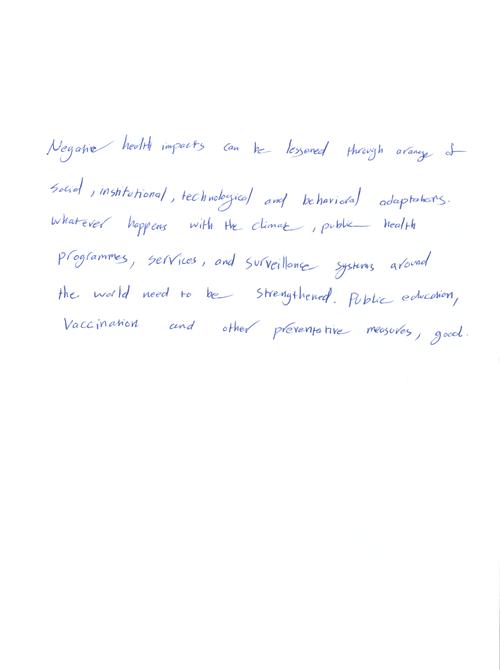 Negative health impacts can be lessened through a range of
social, institutional, technological and behavioral adaptations.
Whatever happens with the climate, public health
programmes, services, and surveillance systems around
the world need to be strengthened. Public education,
Vaccination and other preventative measures, good.